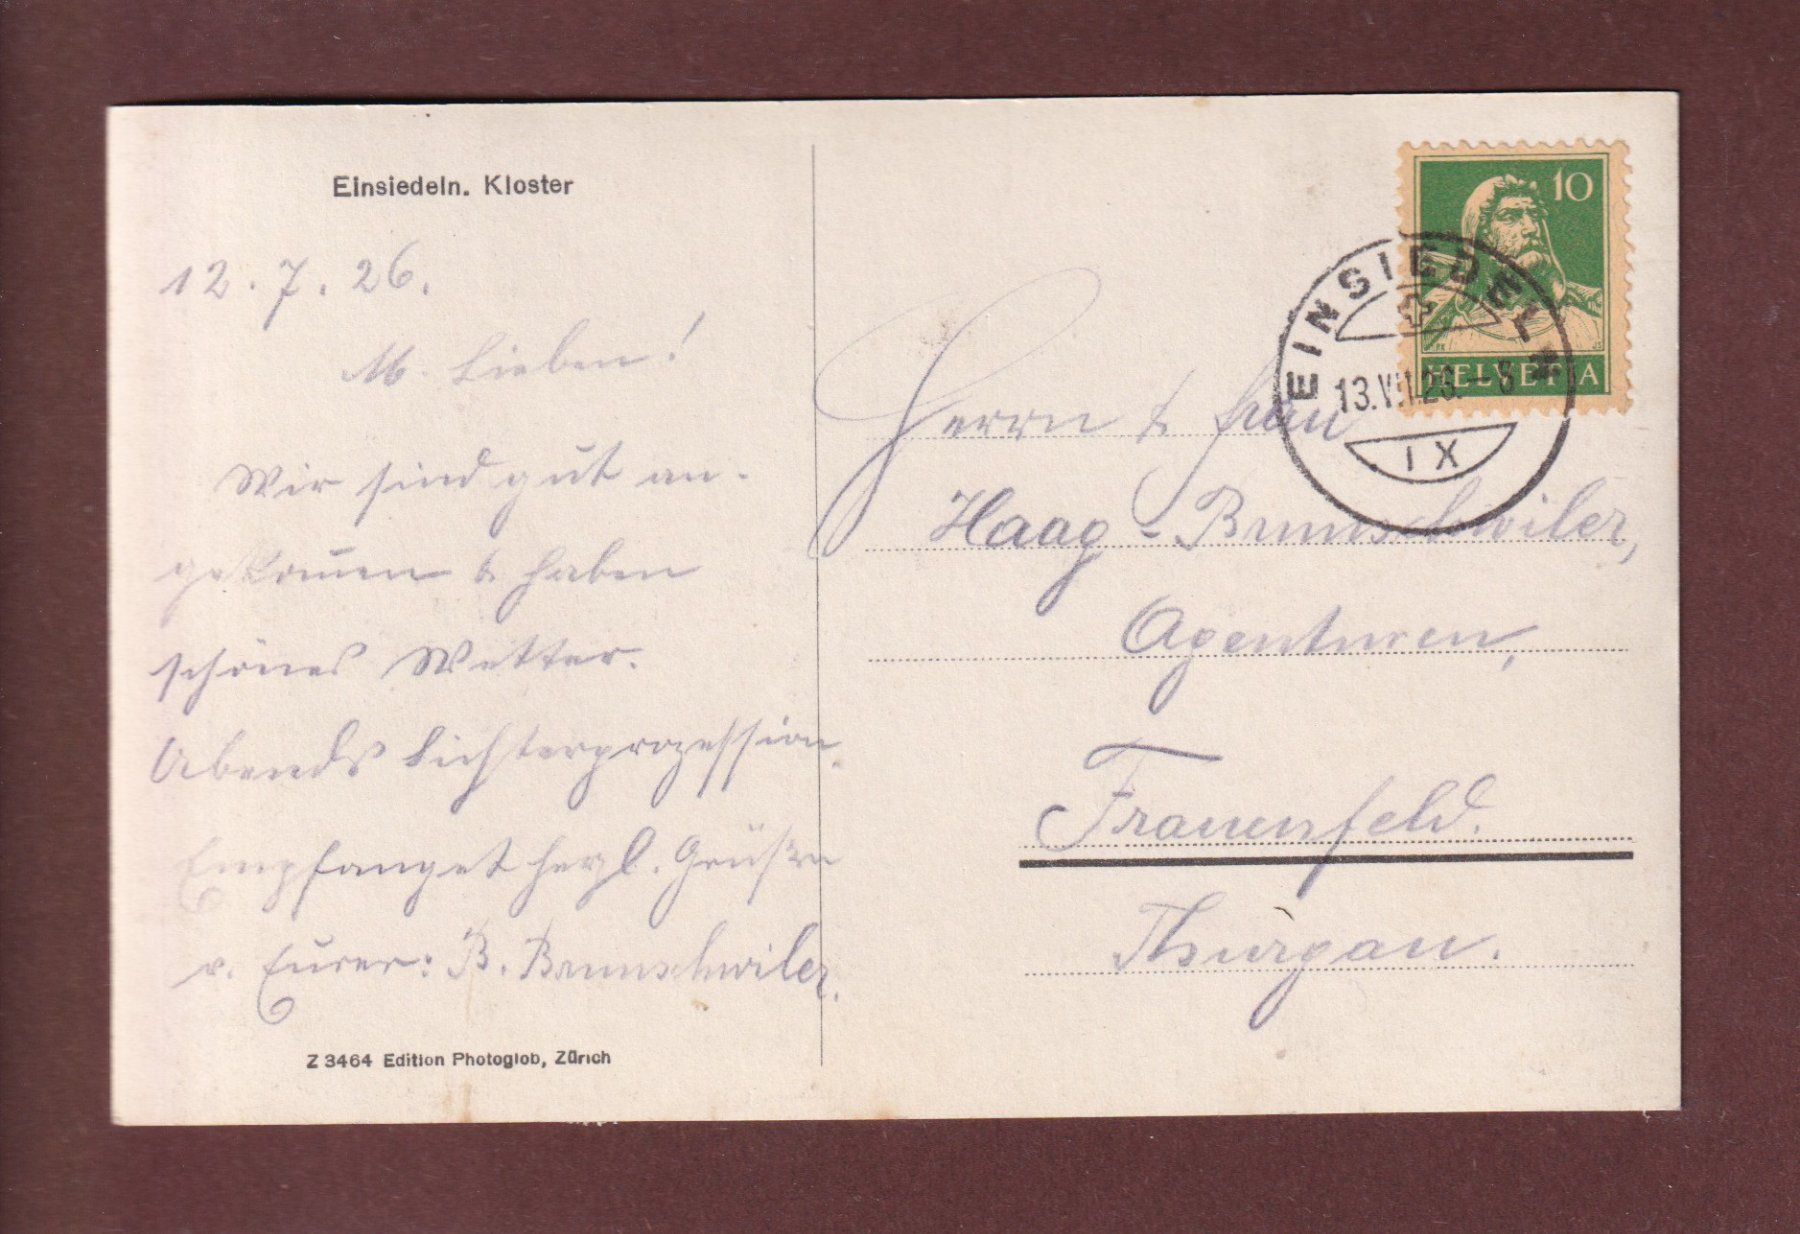 Einsiedeln. Kloster
12. 7. 26.
M. Lieben!
Wir sind gut an-
gekom̄en & haben
schönes Wetter.
Abends Lichterprozession.
Empfanget herzl. Grüße
v. Eurer: B. Brunschwiler.
Z 3464 Edition Photoglob, Zürich
10
HELVETIA
EINSIEDELN
13.VII.26.-8
IX
Herrn & Frau
Haag-Brunschwiler,
Agenturen,
Frauenfeld.
Thurgau.